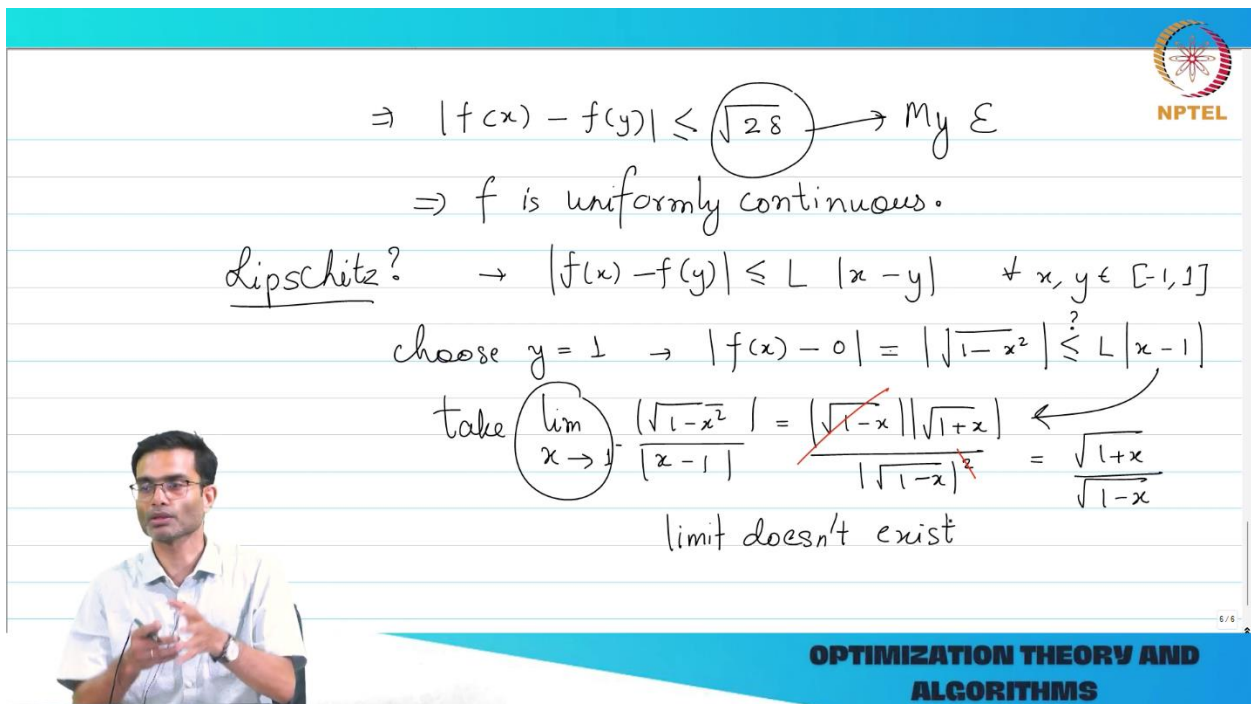 NPTEL
⇒ |f(x) - f(y)| ≤ √2δ → My ε
⇒ f is uniformly continuous.
Lipschitz? → |f(x) - f(y)| ≤ L |x - y| ∀ x, y ∈ [-1, 1]
choose y = 1 → |f(x) - 0| = |√1-x²| ≤? L |x - 1|
take lim x→1⁻ |√1-x²| / |x-1| = |√1-x| |√1+x| / |√1-x|² = √1+x / √1-x
limit doesn't exist
6/6
OPTIMIZATION THEORY AND
ALGORITHMS